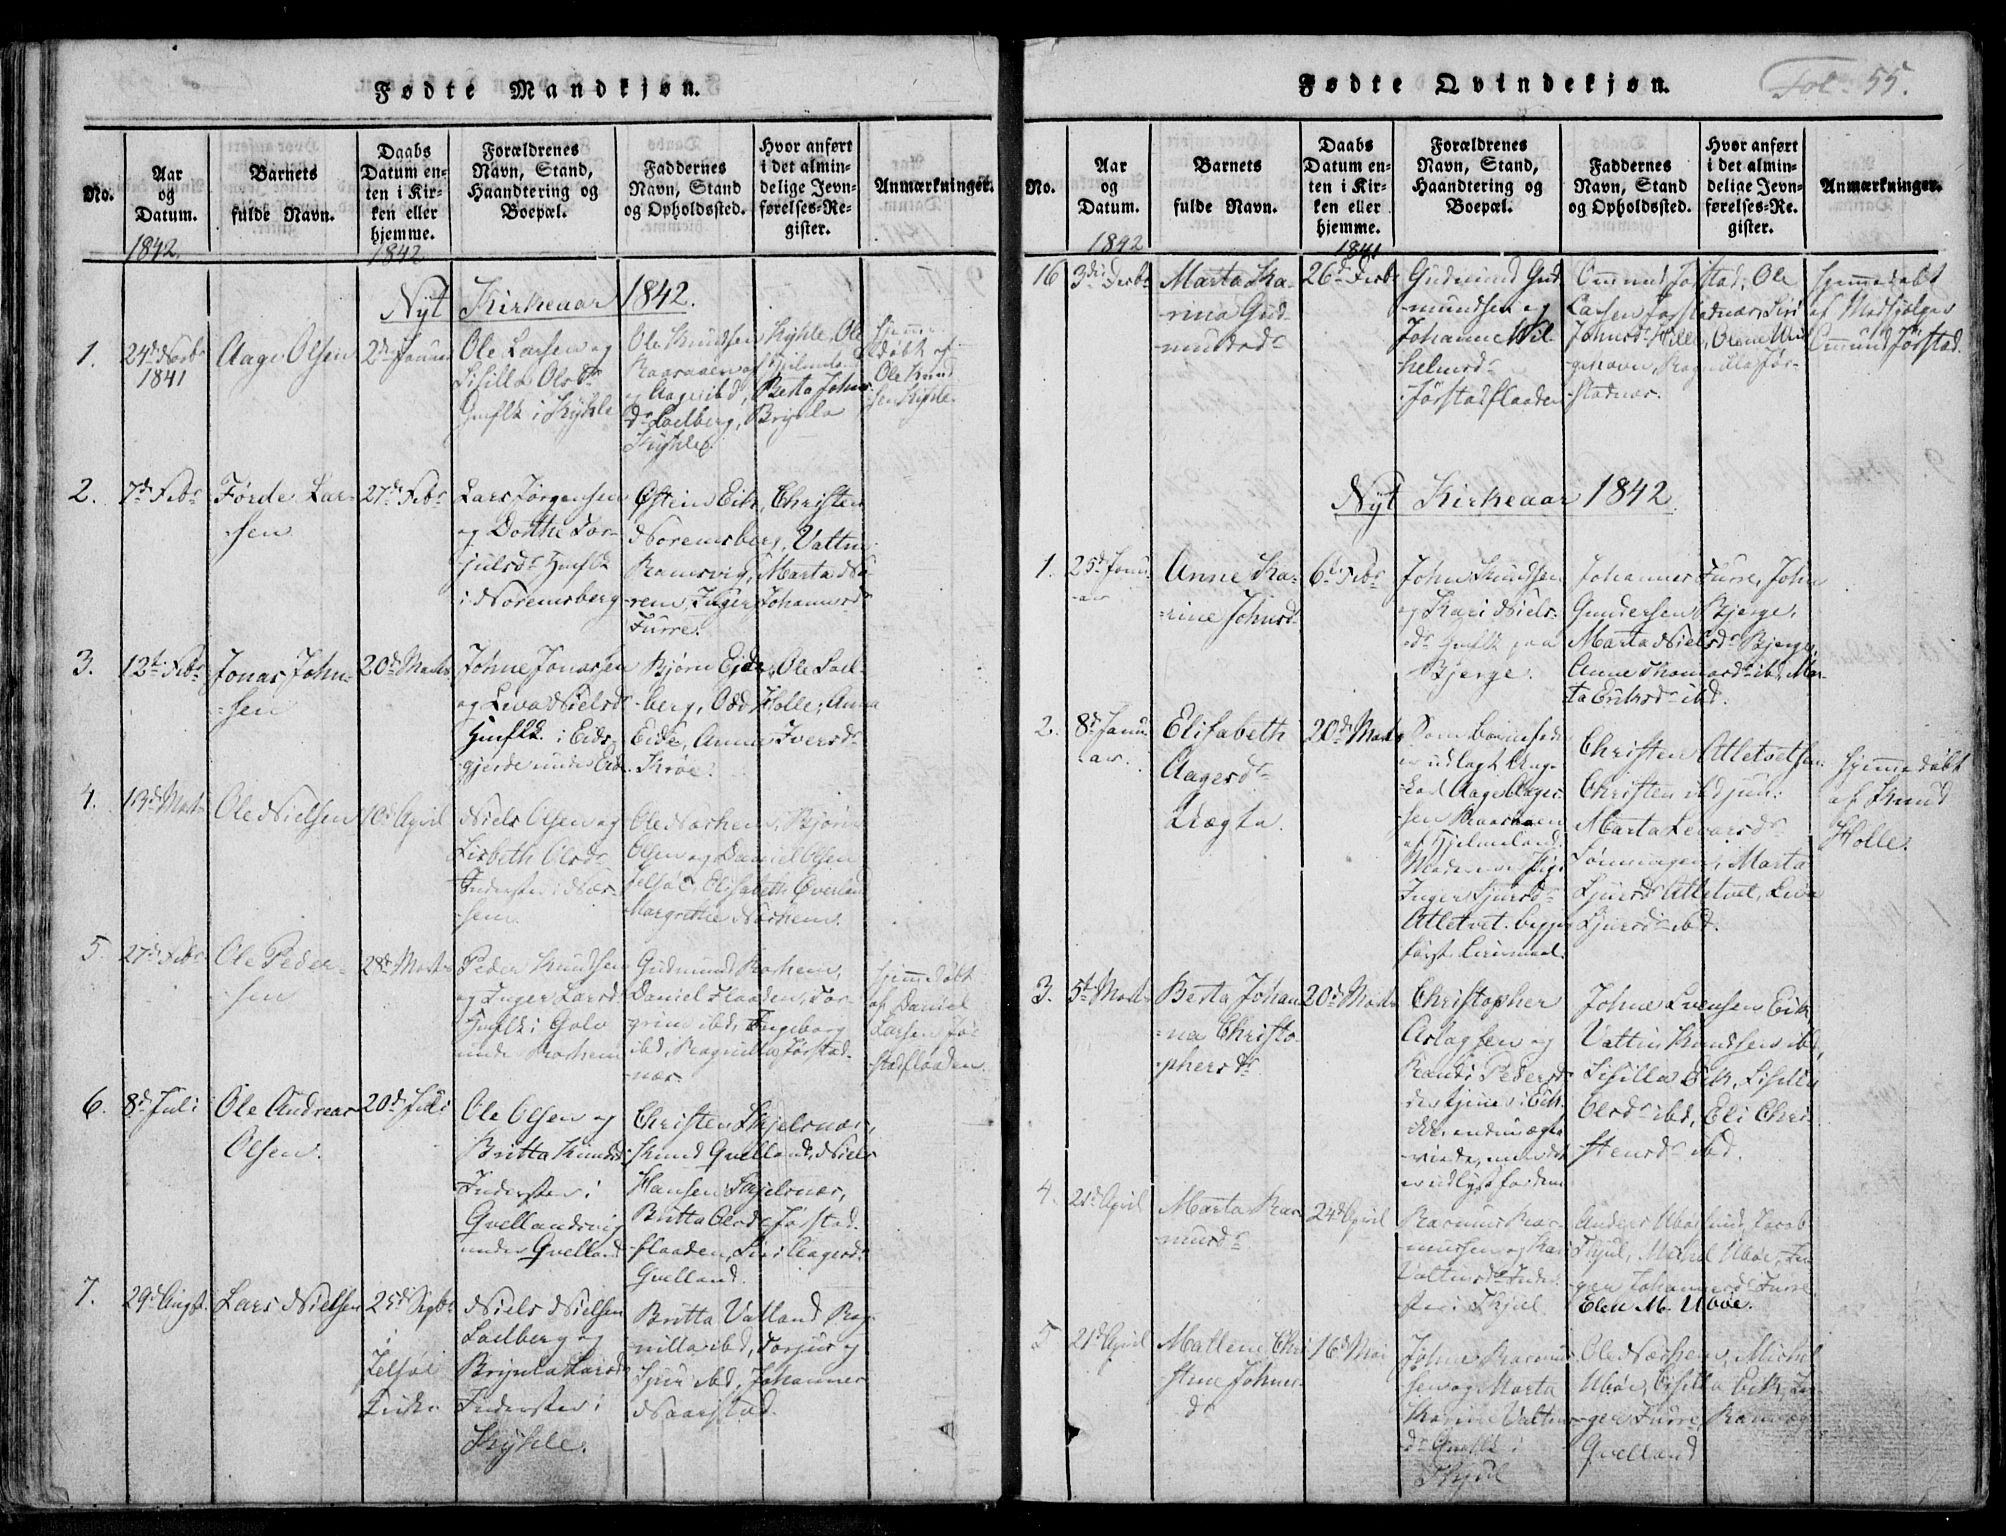 Fødte Mandkjøn.
No.
Aar
og
Datum.
Barnets
fulde Navn.
Daabs
Datum en-
ten i Kir-
ken eller
hjemme.
Forældrenes
Navn, Stand,
Haandtering og
Boepæl.
Faddernes
Navn, Stand
og Opholdssted.
Hvor anført
i det almin-
delige Jevn-
førelses-Re-
gister.
Anmærkninger.
1842.
1842
Nyt Kirkeaar 1842.
1.
24d Novbr
1841
Aage Olsen
2d Januar
Ole Larsen og
Sisilla Olsdr
Gmflk i Kyhle
Ole Knudsen Kyhle, Ole
Aage ibd, Berta Johns
dr Laelberg, Brynla
Kyhle.
Hjemme
døbt af
Ole Knud
sen Kyhle
2.
7d Febr
Førde Lar-
sen
27d Febr
Lars Jørgensen
og Dorthe Tor-
julsdr Gmflk
i Noremsberg
Østein Eik, Christen
Noremsberg, Valtin
Ramsvig, Marta No-
rem, Inger Johannsdr
Furre.
3.
12t Febr
Jonas John-
sen
20d Marts
Johne Jonassen
og Leva Nielsdr
Gmflk i Eids-
gjerde under Eide
Bjørn Eide, Ole Lael-
berg, Odd Holle, Anna
Eide, Anna Iversdr
Krøe.
4.
13d Marts
Ole Nielsen
10d April
Niels Olsen og
Lisbeth Olsdr
Inderster i Nær-
hem
Ole Nærhem, Bjørn
Olsen og Daniel Olsen
Jelsøe, Elisabeth Øverland
Margrethe Nærhem.
5.
27d Febr
Ole Peder-
sen
28d Marts
Peder Knudsen
og Inger Larsdr
Gmflk i Golv
under Barhem
Gudmund Barhem,
Daniel Flaaden, Tor-
grim ibd, Ingeborg
ibd, Ragnilla Førstad-
nær.
Hjemdøbt
af Daniel
Larsen Før-
stadflaaden.
6.
8d Juli
Ole Andreas
Olsen.
20d Juli
Ole Olsen og
Britta Knudsd
Inderster i
Qvellandsvig
under Qvelland
Christen Skjelsnær,
Knud Qvelland, Niels
Hansen Skjelsnær,
Britta Olsdr Førstad
flaaden, Siri Aagesdr
Qvelland.
7.
29d Augst.
Lars Nielsen
25d Septbr
i
Jelsøe
Kirke
Niels Nielsen
Laelberg og
Brynla Larsd
Inderster i
Kyhle.
Britta Valland Rag-
nilla ibd, Torjus og
Sjur ibd, Johannes
Naarstad.
Fødte Qvindekjøn.
Fol. 55.
No.
Aar
og
Datum.
Barnets
fulde Navn.
Daabs
Datum en-
ten i Kir-
ken eller
hjemme.
Forældrenes
Navn, Stand,
Haandtering og
Boepæl.
Faddernes
Navn, Stand
og Opholdssted.
Hvor anført
i det almin-
delige Jevn-
førelses-Re-
gister.
Anmærkninger.
1842
1841
16
3die Decbr
Marta Ka-
rina Gud-
mundsdr
26d Decbr
Gudmund Gud
mundsen og
Johanne Wil-
helmsdr
Førstadflaaden
Ommund Førstad, Ole
Larsen Førstadnær, Siri
Johnsdr Hille, Olene Wii
gehavn, Ragnilla Før-
stadnær.
Hjemmedøbt
af Medhjelper
Ommund Førstad.
Nyt Kirkeaar 1842.
1.
25d Janu-
ar
Anne Ka-
rine Johnsd
6te Febr
John Knudsen
og Kari Niels-
dr Gmflk paa
Bjerge.
Johannes Furre, John
Gundersen Bjerge,
Marta Nielsdr Bjerge,
Anne Thomasdr ibd, Mar-
ta Eriksdr ibd.
2.
8d Janu-
ar.
Elisabeth
Aagesdr
Uægta.
20d Marts
Som Barnefader
er udlagt Unge-
karl Aage Aages-
sen
af Hjelmeland.
Moderen er Pige
Inger Sjursdr
Atletvet. begges
første Leiermaal.
Christen Atletvetsen
Christen ibd jun:
Marta Levorsdr
Marta
Sjursdr Atletvet, Leva
Sjursdr ibd.
Hjemmedøbt
af Knud
Holle.
3.
5te Marts
Berta Johan
na Christo-
phersdr
20d Marts
Christopher
Aslagsen og
Randi Pedersd
der tjener i Eik
Johne Svensen Eik,
Valtin Knudsen ibd,
Sisilla Eik, Sisilla
Olsdr ibd, Eli Chri-
stensdr ibd.
4.
21d April
Marta Ras-
musdr
24d April
Rasmus Ras-
mussen og Kari
Valtinsdr Inder-
ster i Skjøl
Anders Uboelund, Jacob
Skjul, Michel Uboe, In-
ger Johannesdr Furre
Elen M. Uboe.
5
21d April
Mallene Chri
stine Johns-
dr
16d Mai
Johne Rasmus-
sen og Marta
Karine Valtins-
dr Gmflk i
Skjul
Ole Nærhem, Michel
Uboe, Sisilla Eik, In-
ger Furre,
Qvelland